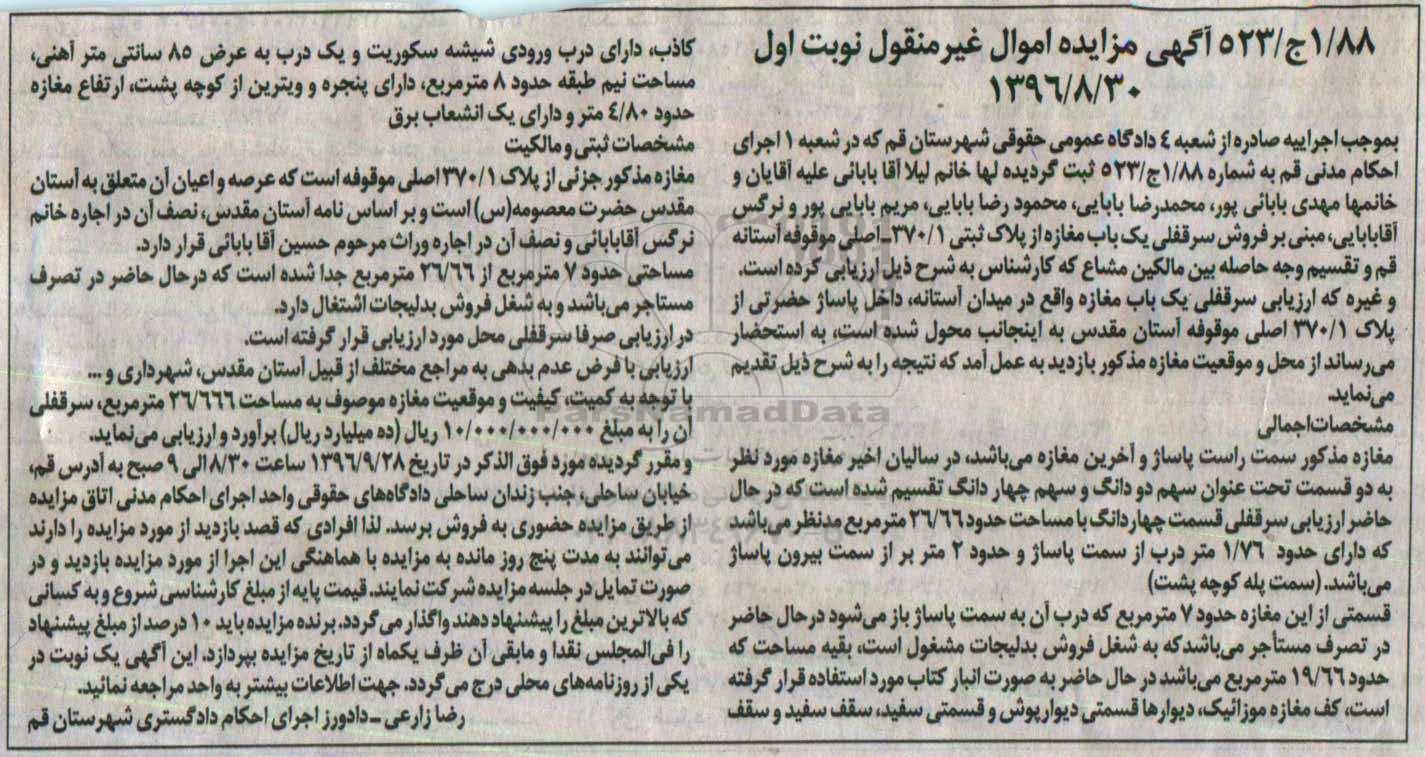 ۱/۸۸ج/۵۲۳ آگهی مزایده اموال غیرمنقول نوبت اول
۱۳۹۶/۸/۳۰
بموجب اجراییه صادره از شعبه ٤ دادگاه عمومی حقوقی شهرستان قم که در شعبه ۱ اجرای
احکام مدنی قم به شماره ۱/۸۸ج/۵۲۳ ثبت گردیده لها خانم لیلا آقا بابائی علیه آقایان و
خانمها مهدی بابائی پور، محمدرضا بابایی، محمود رضا بابایی، مریم بابایی پور و نرگس
آقابابایی، مبنی بر فروش سرقفلی یک باب مغازه از پلاک ثبتی ۳۷۰/۱-اصلی موقوفه آستانه
قم و تقسیم وجه حاصله بین مالکین مشاع که کارشناس به شرح ذیل ارزیابی کرده است.
و غیره که ارزیابی سرقفلی یک باب مغازه واقع در میدان آستانه، داخل پاساژ حضرتی از
پلاک ۳۷۰/۱ اصلی موقوفه آستان مقدس به اینجانب محول شده است، به استحضار
می‌رساند از محل و موقعیت مغازه مذکور بازدید به عمل آمد که نتیجه را به شرح ذیل تقدیم
می‌نماید.
مشخصات‌اجمالی
مغازه مذکور سمت راست پاساژ و آخرین مغازه می‌باشد، در سالیان اخیر مغازه مورد نظر
به دو قسمت تحت عنوان سهم دو دانگ و سهم چهار دانگ تقسیم شده است که در حال
حاضر ارزیابی سرقفلی قسمت چهاردانگ با مساحت حدود ۲۶/۶۶ مترمربع مدنظر می‌باشد
که دارای حدود ۱/۷۶ متر درب از سمت پاساژ و حدود ۲ متر بر از سمت بیرون پاساژ
می‌باشد. (سمت پله کوچه پشت)
قسمتی از این مغازه حدود ۷ مترمربع که درب آن به سمت پاساژ باز می‌شود درحال حاضر
در تصرف مستأجر می‌باشدکه به شغل فروش بدلیجات مشغول است، بقیه مساحت که
حدود ۱۹/۶۶ مترمربع می‌باشد در حال حاضر به صورت انبار کتاب مورد استفاده قرار گرفته
است، کف مغازه موزائیک، دیوارها قسمتی دیوارپوش و قسمتی سفید، سقف سفید و سقف
کاذب، دارای درب ورودی شیشه سکوریت و یک درب به عرض ۸۵ سانتی متر آهنی،
مساحت نیم طبقه حدود ۸ مترمربع، دارای پنجره و ویترین از کوچه پشت، ارتفاع مغازه
حدود ٤/۸۰ متر و دارای یک انشعاب برق
مشخصات ثبتی و مالکیت
مغازه مذکور جزئی از پلاک ۳۷۰/۱ اصلی موقوفه است که عرصه و اعیان آن متعلق به آستان
مقدس حضرت معصومه(س) است و بر اساس نامه آستان مقدس، نصف آن در اجاره خانم
نرگس آقابابائی و نصف آن در اجاره وراث مرحوم حسین آقا بابائی قرار دارد.
مساحتی حدود ۷ مترمربع از ۲۶/۶۶ مترمربع جدا شده است که درحال حاضر در تصرف
مستاجر می‌باشد و به شغل فروش بدلیجات اشتغال دارد.
در ارزیابی صرفا سرقفلی محل مورد ارزیابی قرار گرفته است.
ارزیابی با فرض عدم بدهی به مراجع مختلف از قبیل آستان مقدس، شهرداری و ...
با توجه به کمیت، کیفیت و موقعیت مغازه موصوف به مساحت ۲۶/۶۶۶ مترمربع، سرقفلی
آن را به مبلغ ۱۰/۰۰۰/۰۰۰/۰۰۰ ریال (ده میلیارد ریال) برآورد و ارزیابی می‌نماید.
و مقرر گردیده مورد فوق الذکر در تاریخ ۱۳۹۶/۹/۲۸ ساعت ۸/۳۰ الی ۹ صبح به آدرس قم،
خیابان ساحلی، جنب زندان ساحلی دادگاه‌های حقوقی واحد اجرای احکام مدنی اتاق مزایده
از طریق مزایده حضوری به فروش برسد. لذا افرادی که قصد بازدید از مورد مزایده را دارند
می‌توانند به مدت پنج روز مانده به مزایده با هماهنگی این اجرا از مورد مزایده بازدید و در
صورت تمایل در جلسه مزایده شرکت نمایند. قیمت پایه از مبلغ کارشناسی شروع و به کسانی
که بالاترین مبلغ را پیشنهاد دهند واگذار می‌گردد. برنده مزایده باید ۱۰ درصد از مبلغ پیشنهاد
را فی‌المجلس نقدا و مابقی آن ظرف یکماه از تاریخ مزایده بپردازد. این آگهی یک نوبت در
یکی از روزنامه‌های محلی درج می‌گردد. جهت اطلاعات بیشتر به واحد مراجعه نمائید.
رضا زارعی -دادورز اجرای احکام دادگستری شهرستان قم
ParsNamadData